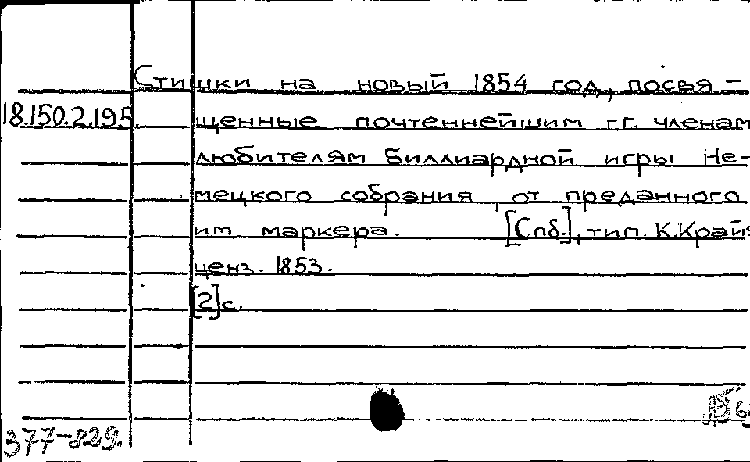 Стишки на новый 1854 год, посвя-
18.150.2.195
щенные почтеннейшим г.г. членам
любителям биллиардной игры Не-
мецкого собрания, от преданного
им маркера. [Спб.], тип. К.Край
ценз. 1853.
[2] с.
377-829.